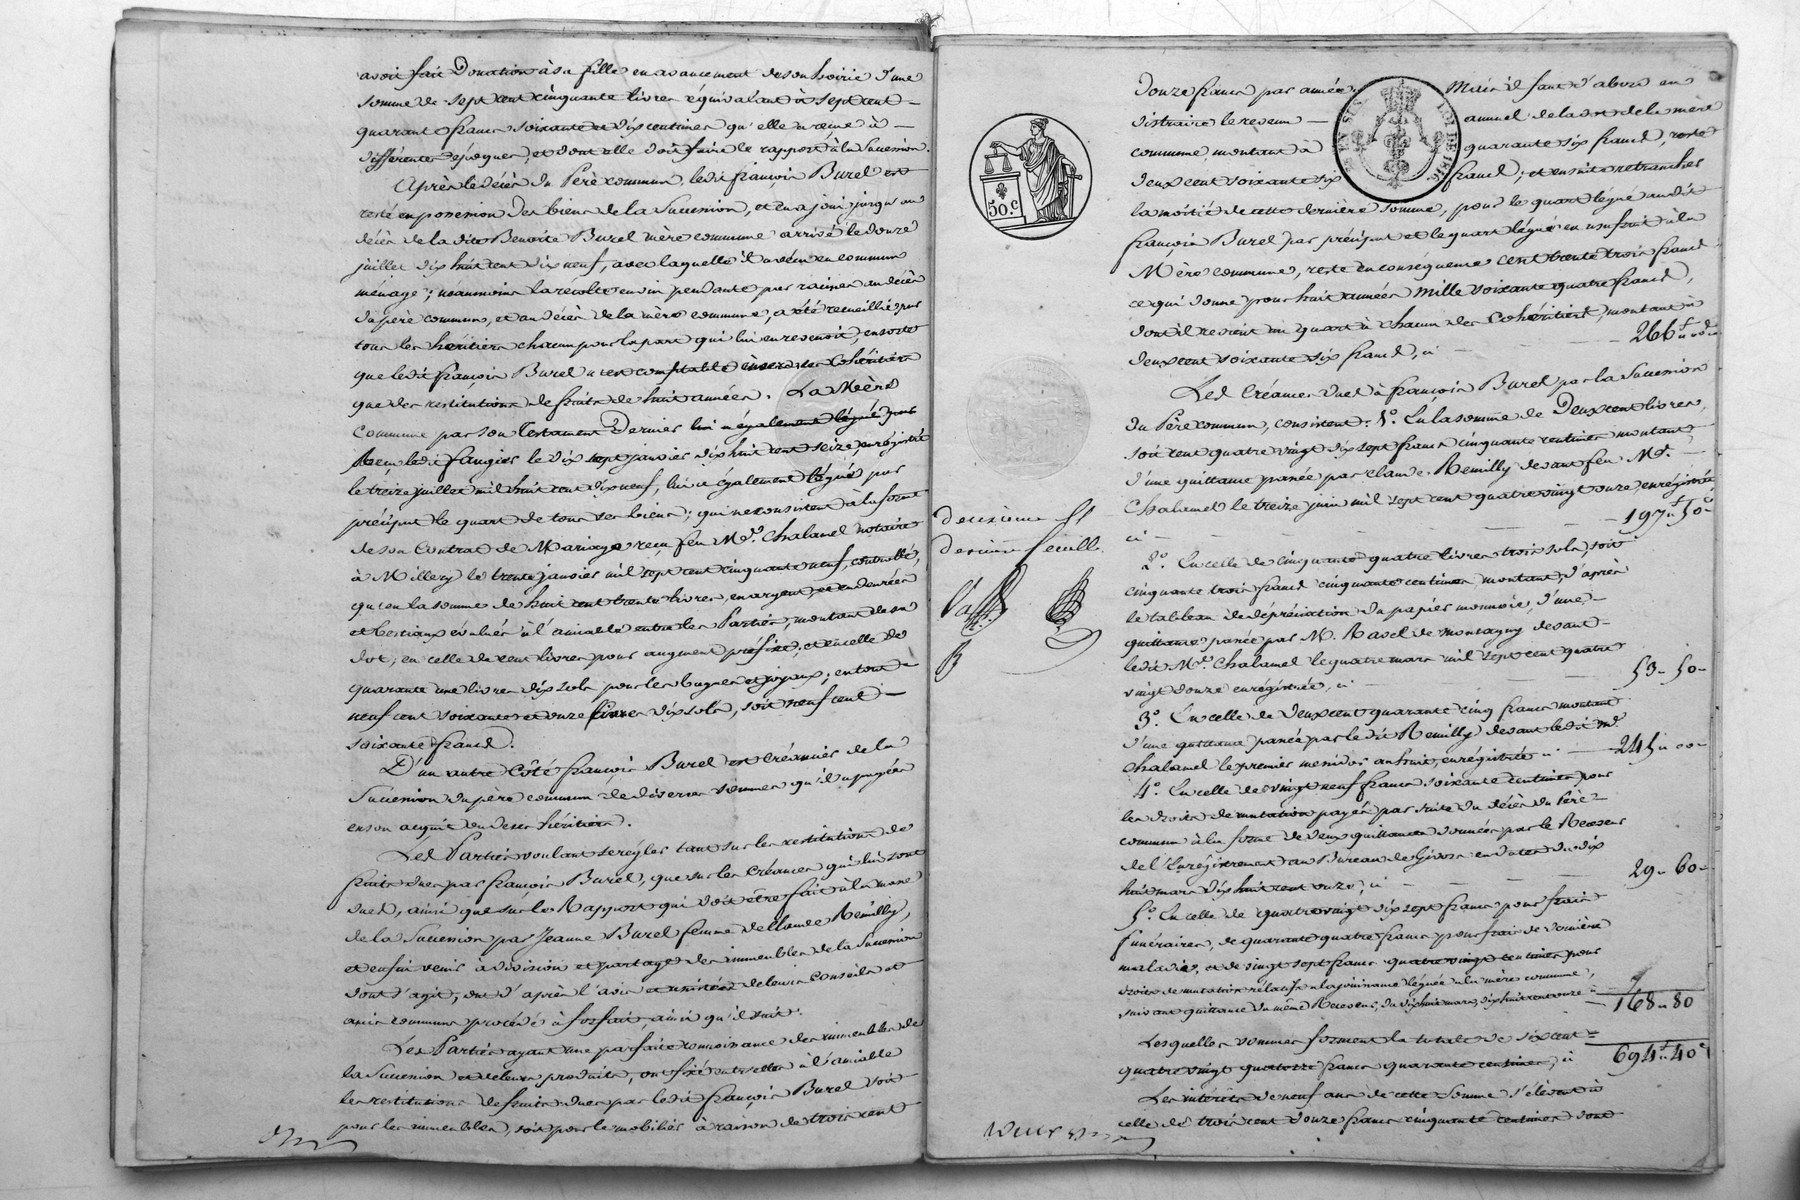 avoit fait Donation à sa fille en avancement de son hoirie d'une
somme de sept cent cinquante livres équivalant à sept cent
quarante francs soixante et dix centimes qu'elle a reçue à
différentes époques, et dont elle doit faire le rapport à la Succession.
Après le décès du Père commun, ledit françois Burel est
resté en possession des biens de la Succession, et en a joui jusqu'au
décès de la dite Benoite Burel mère commune arrivé le douze
juillet dix huit cent dix neuf, avec laquelle il a vécu en commun
ménage; néanmoins la récolte en vin pendante par racines au décès
du père commun, et au décès de la mère commune, a été recueillie par
tous les héritiers chacun pour la part qui lui en revenoit, en sorte
que ledit françois Burel n'est comptable envers ses Cohéritiers
que des restitutions de fruits de huit années. La Mère
commune par son Testament Dernier
Reçu ledit faugier le dix sept janvier dix huit cent seize, enrégistré
le treize juillet mil huit cent dix neuf, lui a également légué par
préciput le quart de tous ses biens; qui ne consistent à la forme
de son Contrat de Mariage reçu feu Me. Chalamel notaire
à Millery le trente janvier mil sept cent cinquante neuf, controllé,
qu'en la somme de huit cent trente livres, en argent, et en denrées
et bestiaux évalués à l'amiable entre les Parties, montant de sa
dot; en celle de cent livres pour augment préfixe, et en celle de
quarante une livres dix sols pour les bagues et joyaux; en tout
neuf cent soixante et onze livres dix sols, soit neuf cent
soixante francs.
D'un autre Côté françois Burel est Créancier de la
Succession du père commun de diverses sommes qu'il a payées
en son acquit ou de ses héritiers.
Les Parties voulant se régler tant sur les restitutions de
fruits dues par françois Burel, que sur les Créances qui lui sont
dues, ainsi que sur le Rapport qui doit être fait à la masse
de la Succession par Jeanne Burel femme de Claude Remilly,
et enfin venir à division et partage des immeubles de la Succession
dont s'agit, ont d'après l'avis de leurs conseils et
amis communs procédé à forfait, ainsi qu'il suit.
Les Parties ayant une parfaite connoissance des immeubles de
la Succession et de leurs produits, ont fixé entr'elles à l'amiable
les restitutions de fruits dues par ledit françois Burel soit
pour les immeubles, soit pour le mobilier à raison de trois cent
50.c
douze francs par année. Mais il faut d'abord en
distraire le revenu annuel de la dot de la mère
commune montant à quarante six francs, reste
deux cent soixante six francs; et ensuite retrancher
la moitié de cette dernière somme, pour le quart légué audit
françois Burel par préciput et le quart légué en usufruit à la
Mère commune, reste en conséquence cent trente trois francs
ce qui donne pour huit années Mille soixante quatre francs,
dont il revient un quart à chacun des Cohéritiers, montant à
deux cent soixante six francs, ci 266f 00c
Les Créances dues à françois Burel par la Succession
du Père commun, consistent: 1o. En la somme de Deux cent livres,
soit cent quatre vingt dix sept francs cinquante centimes montant
d'une quittance passée par Claude Remilly devant feu Me.
Chalamel le treize juin mil sept cent quatre vingt onze, enrégistrée
ci 197f 50c
deuxième et
dernière feuille
2o. En celle de cinquante quatre livres trois sols, soit
cinquante trois francs cinquante centimes montant, d'après
le tableau de dépréciation du papier monnoie, d'une
quittance passée par M. Ravel de montagny devant
ledit Me. Chalamel le quatre mars mil sept cent quatre
vingt douze enrégistrée, ci 53 50
3o. En celle de Deux cent quarante cinq francs montant
d'une quittance passée par ledit Remilly devant ledit Me.
Chalamel le premier messidor an huit, enrégistrée ci 245 00
4o. En celle de vingt neuf francs soixante centimes pour
les droits de mutation payés par suite du décès du Père
commun à la forme de deux quittances données par le Receveur
de l'Enrégistrement au Bureau de Givors en dates du dix
huit mars dix huit cent onze, ci 29 60
5o. En celle de quatre vingt dix sept francs pour frais
funéraires, de quarante quatre francs pour frais de dernière
maladie, et de vingt sept francs quatre vingt centimes pour
droits de mutation rélatifs à la jouissance léguée à la mère commune,
suivant quittance du même Receveur, du dix huit mars dix huit cent onze 168 80
Lesquelles sommes forment la totale de six cent
quatre vingt quatorze francs quarante centimes, ci 694f 40c
Les intérêts de neuf ans de cette somme s'élèvent à
celle de trois cent douze francs cinquante centimes dont